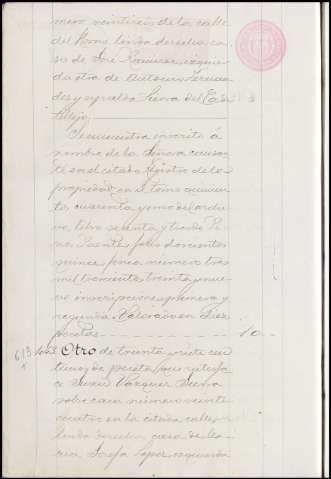 mero veintiseis de la calle
del Horno linda derecha ca-
sa de José Ramirez, izquier-
da otra de Antonio Fernan-
dez y espalda Sierra del Ca-
Se encuentra inscrito á
nombre de la Señora causan-
te en el citado Registro de la
propiedad en el tomo quinien-
tos cuarenta y uno del archi-
vo, libro setenta y tres de
Puente, folio doscientos
quince finca número tres
mil trescientos treinta y nue-
ve inscripciones primera y
segunda. Valorado en Diez
pesetas 10
613 Otro de treinta y siete cen-
timos de peseta que satisface
Juan Vazquez
sobre casa número veinte
cuatro en la citada calle,
linda derecha casa de Ma-
ria Josefa Lopez, izquierda